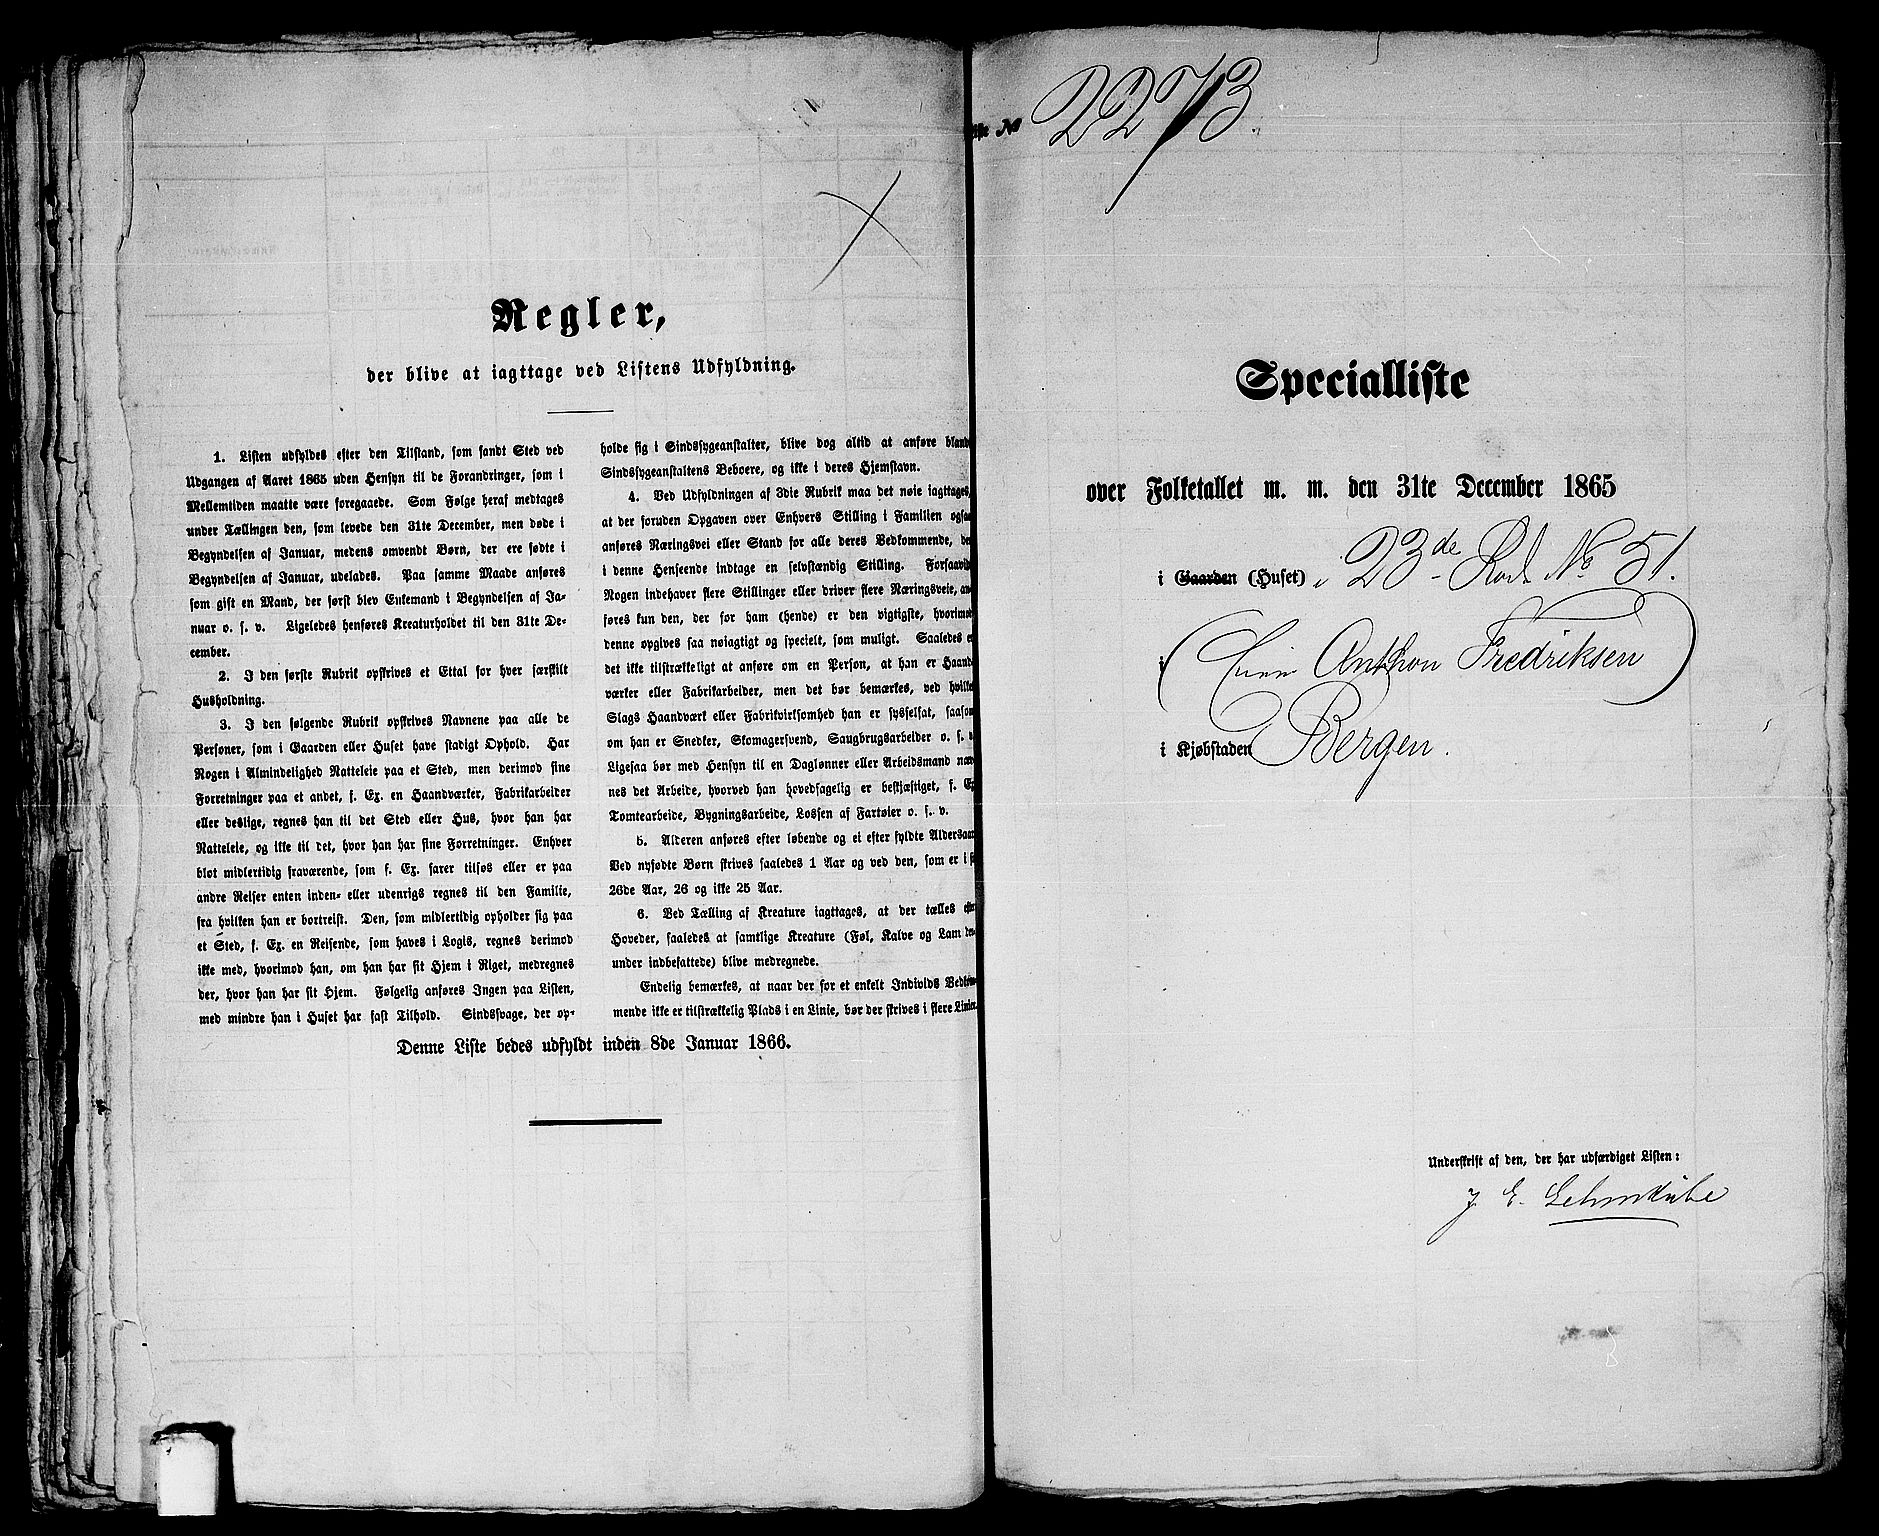 Regler,
der blive at iagttage ved Listens Udfyldning.
1. Listen udfyldes efter den Tilstand, som fandt Sted ved
Udgangen af Aaret 1865 uden Hensyn til de Forandringer, som i
Mellemtiden maatte være foregaaede. Som Følge heraf medtages
under Tællingen den, som levede den 31te December, men døde i
Begyndelsen af Januar, medens omvendt Børn, der ere fødte i
Begyndelsen af Januar, udelades. Paa samme Maade anføres
som gift en Mand, der først blev Enkemand i Begyndelsen af Ja-
nuar o. s. v. Ligeledes henføres Kreaturholdet til den 31te De-
cember.
2. I den første Rubrik opskrives et Ettal for hver særskilt
Husholdning.
3. I den følgende Rubrik opskrives Navnene paa alle de
Personer, som i Gaarden eller Huset have stadigt Ophold. Har
Nogen i Almindelighed Natteleie paa et Sted, men derimod sine
Forretninger paa et andet, f. Ex. en Haandværker, Fabrikarbeider
eller deslige, regnes han til det Sted eller Hus, hvor han har
Natteleie, og ikke til det, hvor han har sine Forretninger. Enhver
blot midlertidig fraværende, som f. Ex. farer tilsøs eller er paa
andre Reiser enten inden- eller udenrigs regnes til den Familie,
fra hvilken han er bortreist. Den, som midlertidig opholder sig paa
et Sted, f. Ex. en Reisende, som haves i Logis, regnes derimod
ikke med, hvorimod han, om han har sit Hjem i Riget, medregnes
der, hvor han har sit Hjem. Følgelig anføres Ingen paa Listen,
med mindre han i Huset har fast Tilhold. Sindssvage, der op-
holde sig i Sindssygeanstalter, blive dog altid at anføre blandt
Sindssygeanstaltens Beboere, og ikke i deres Hjemstavn.
4. Ved Udfyldningen af 3die Rubrik maa det nøie iagttages,
at der foruden Opgaven over Enhvers Stilling i Familien ogsaa
anføres Næringsvei eller Stand for alle deres Vedkommende, der
i denne Henseende indtage en selvstændig Stilling. Forsaavidt
Nogen indehaver flere Stillinger eller driver flere Næringsveie, an-
føres kun den, der for ham (hende) er den vigtigste, hvorimod
denne opgives saa nøiagtigt og specielt, som muligt. Saaledes er
det ikke tilstrækkeligt at anføre om en Person, at han er Haand-
værker eller Fabrikarbeider, men det bør bemærkes, ved hvilket
Slags Haandværk eller Fabrikvirksomhed han er sysselsat, saasom
om han er Snedker, Skomagersvend, Saugbrugsarbeider o. s. v.
Ligesaa bør med Hensyn til en Dagløner eller Arbeidsmand næv-
nes det Arbeide, hvorved han hovedsagelig er beskjæftiget, f. Ex.
Tomtearbeide, Bygningsarbeide, Lossen af Fartøier o. s. v.
5. Alderen anføres efter løbende og ei efter fyldte Aldersaar.
Ved nyfødte Børn skrives saaledes 1 Aar og ved den, som er i sit
26de Aar, 26 og ikke 25 Aar.
6. Ved Tælling af Kreature iagttages, at der tælles efter
Hoveder, saaledes at samtlige Kreature (Føl, Kalve og Lam der-
under indbefattede) blive medregnede.
Endelig bemærkes, at naar der for et enkelt Individs Vedkom-
mende ikke er tilstrækkelig Plads i en Linie, bør der skrives i flere Linier.
Denne Liste bedes udfyldt inden 8de Januar 1866.
№ 2273.
Specialliste
over Folketallet m. m. den 31te December 1865
i Gaarden (Huset) i 23de Rode No 51.
i (Eier Anthon Fredriksen)
i Kjøbstaden Bergen.
Underskrift af den, der har udfærdiget Listen:
J. E. Lehmkuhl